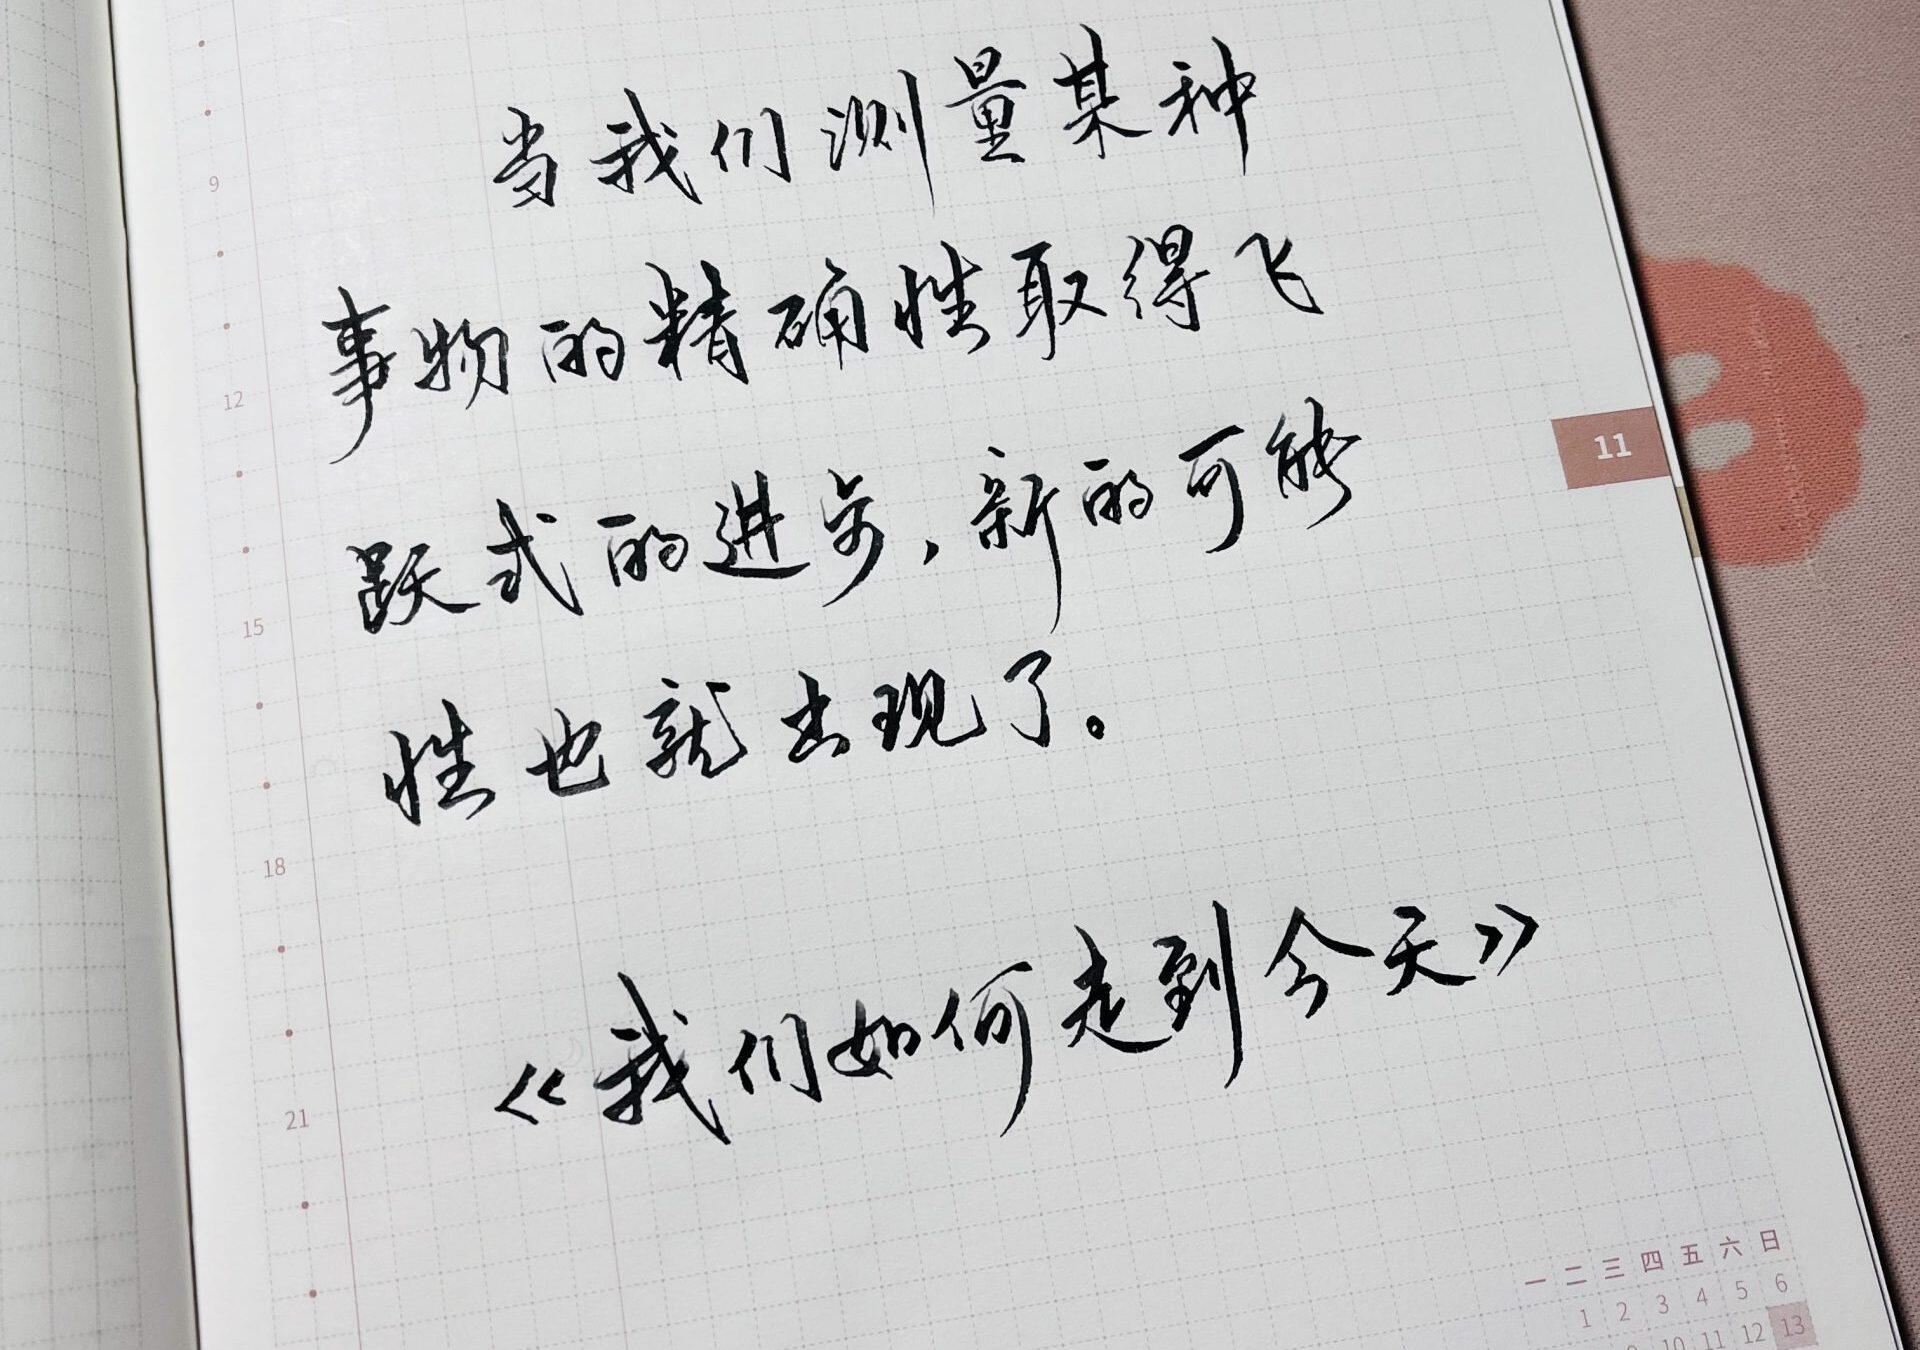 当我们测量某种
9
事物的精确性取得飞
12
11
跃式的进步,新的可能
15
性也就出现了。
18
《我们如何走到今天》
21
一 二 三 四 五 六 日
1 2 3 4 5 6
9 10 11 12 13